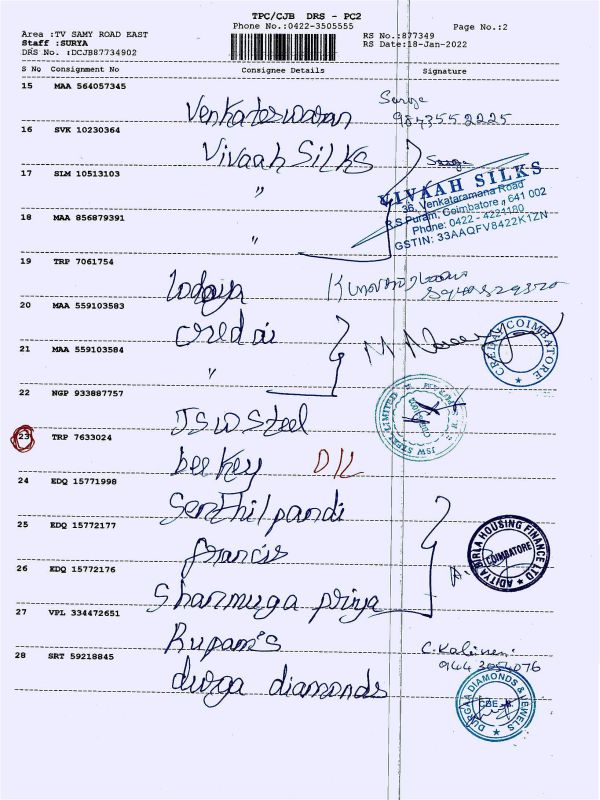 TPC/CJB DRS - PC2
Phone No.:0422-3505555
Page No.:2
Area :TV SAMY ROAD EAST
Staff :SURYA
DRS No. :DCJB87734902
RS No.:877349
RS Date:18-Jan-2022
S No Consignment No Consignee Details Signature
15 MAA 564057345
Venkateswaran
9843552225
16 SVK 10230364
Vivaah SILKS
17 SLM 10513103
"
VIVAAH SILKS
36, Venkataramana Road
R.S Puram, Coimbatore, 641 002
Phone: 0422 - 4221180
GSTIN: 33AAQFV8422K1ZN
18 MAA 856879391
"
19 TRP 7061754
20 MAA 559103583
credai
21 MAA 559103584
"
M
CREDAI COIMBATORE
22 NGP 933887757
JSW Steel
JSW STEEL LIMITED
23 TRP 7633024
beekey D/L
24 EDQ 15771998
Senthilpandi
25 EDQ 15772177
francis
ADITYA BIRLA HOUSING FINANCE LTD
COIMBATORE
26 EDQ 15772176
Shanmuga priya
27 VPL 334472651
Rupam's
9443054076
28 SRT 59218845
durga diamonds
DURGAA DIAMONDS & JEWELS
CBE